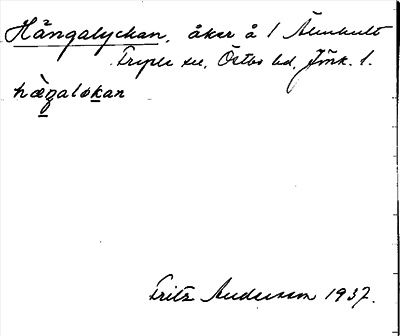 Hängalyckan, åker å 1 Älmhult
Tryserums sn, Östbo hd, Jönk. l.
hæ̀ŋaløkan
Fritz Anderson 1937.